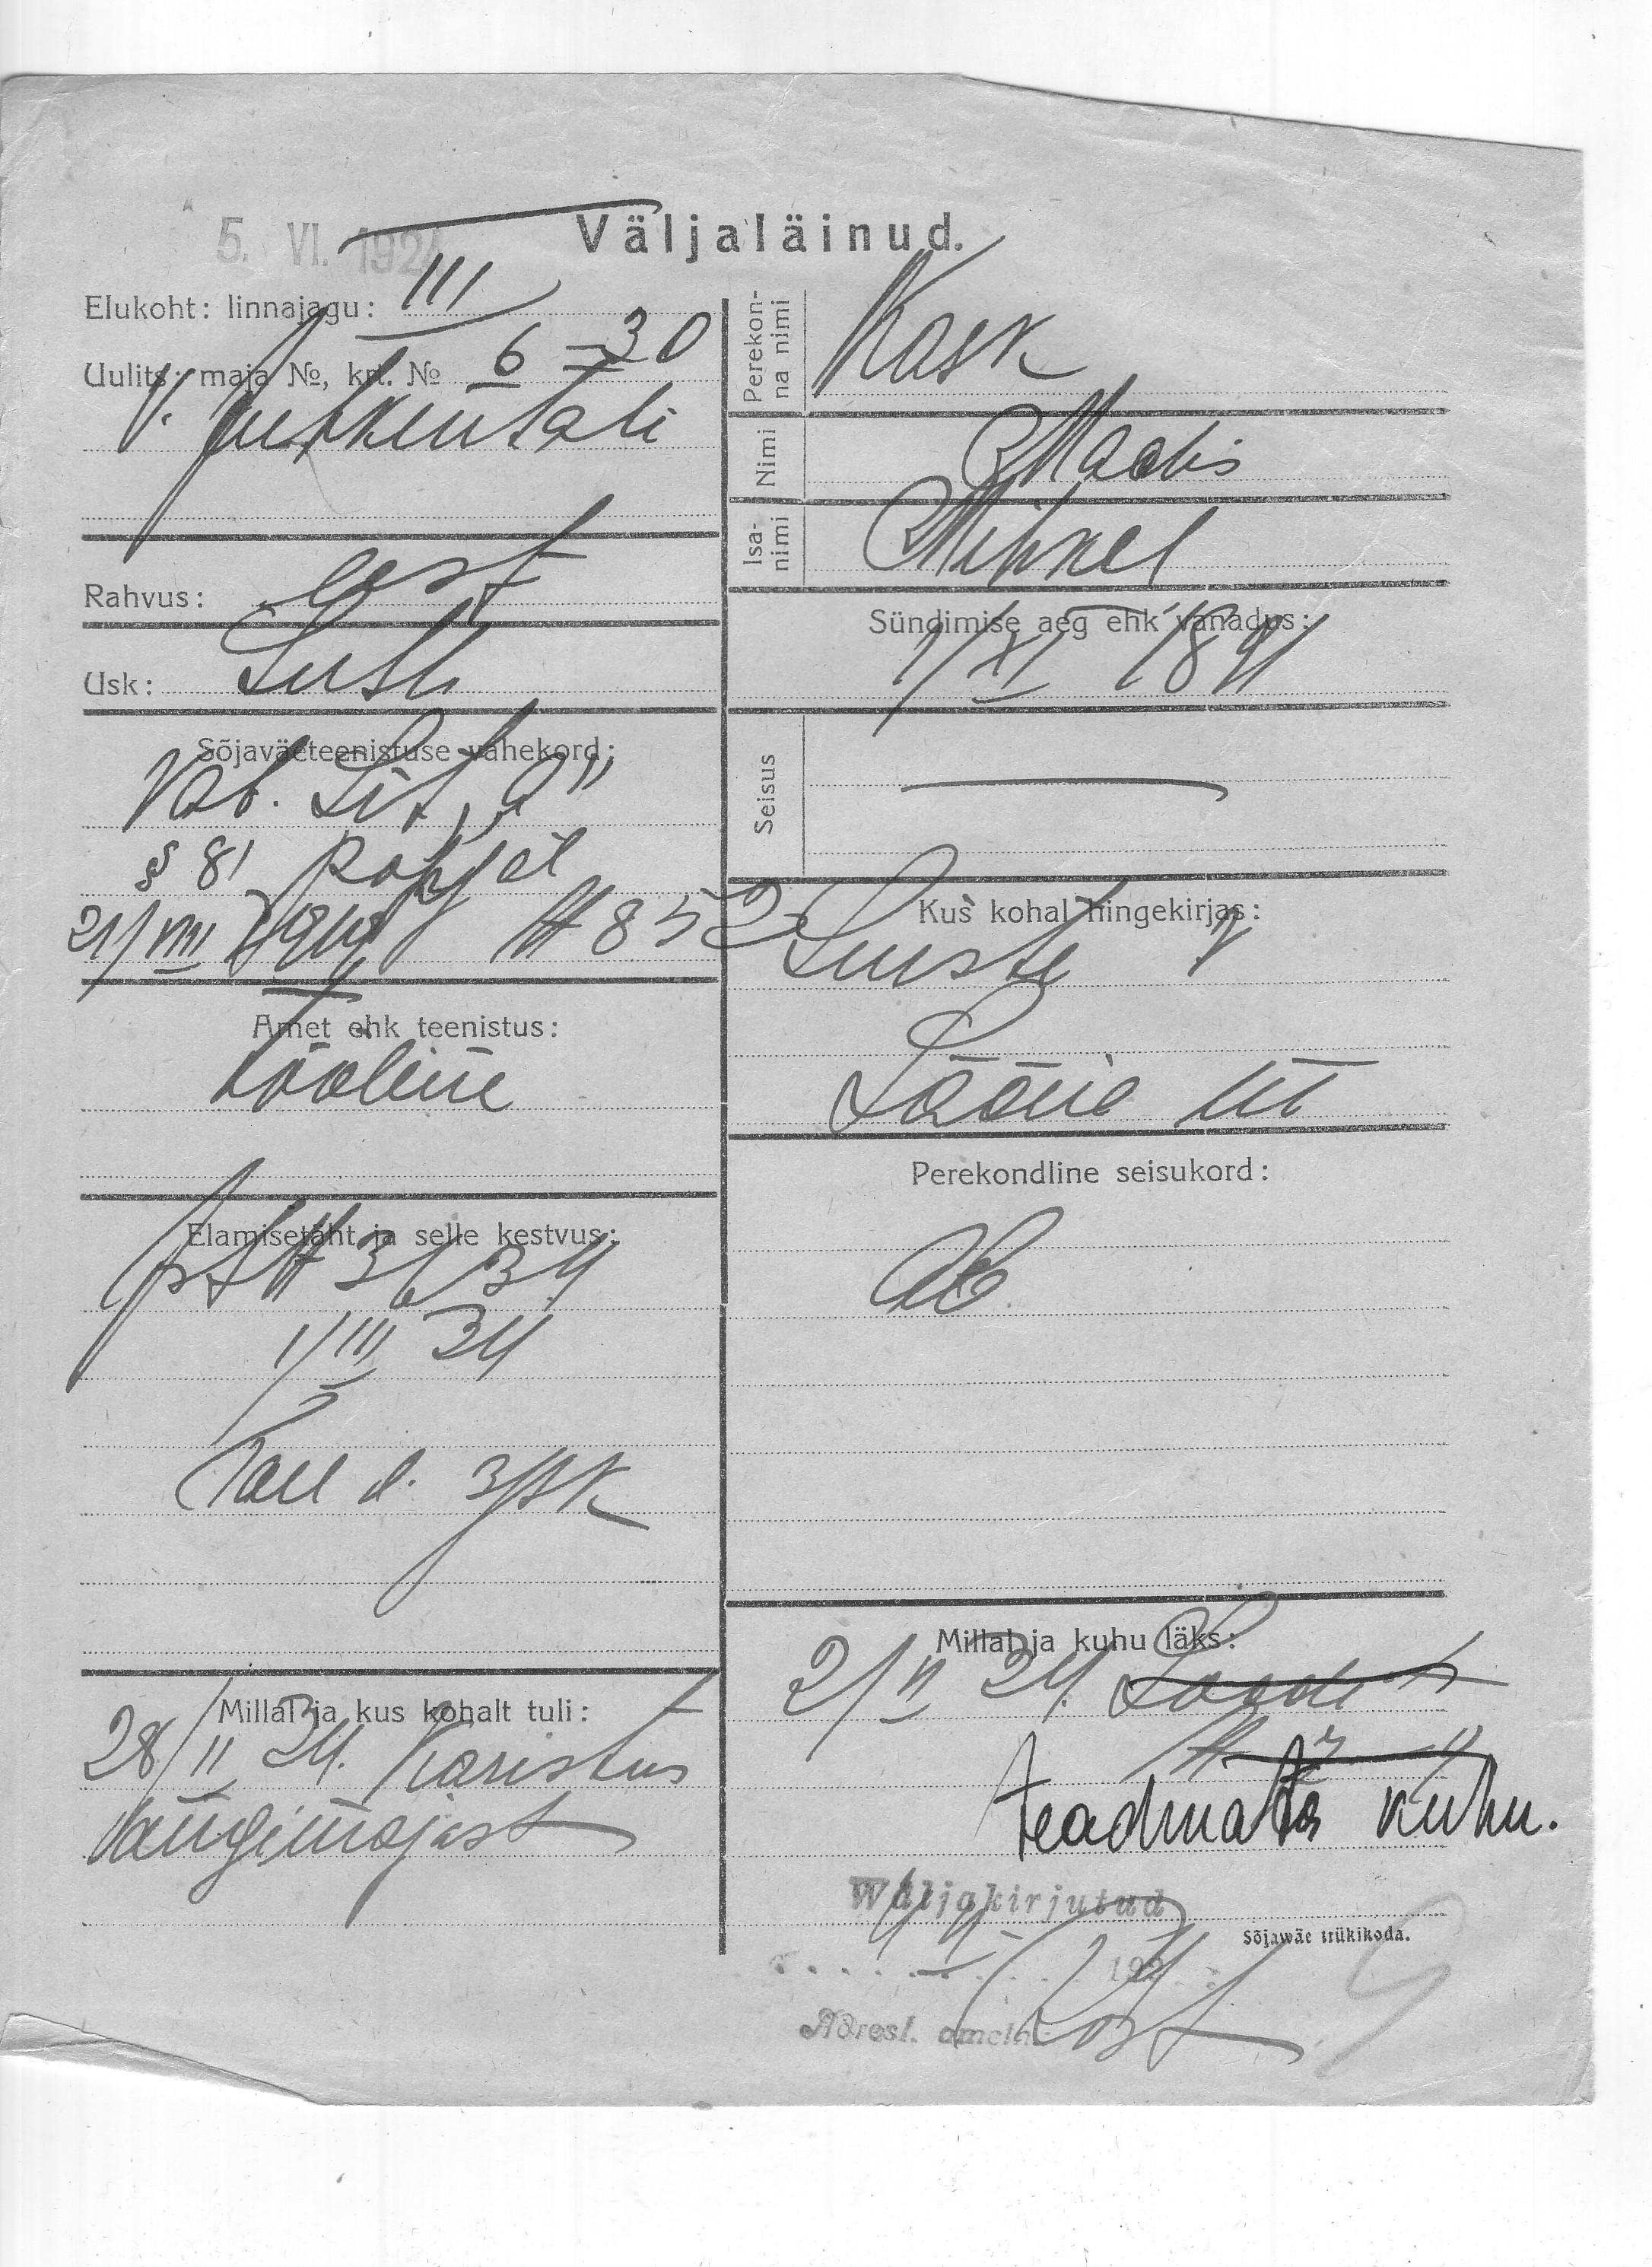 5. VI. 1924
Väljaläinud.
Elukoht: linnajagu: III
Uulits: maja №, krt. № 6 - 30
V. Juhkentali
Rahvus: eest
Usk: Luth
Sõjaväeteenistuse vahekord:
Vab. Lit „a"
§ 81 põhjal
21/VIII 1919 № 852
Amet ehk teenistus:
tööline
Elamisetäht ja selle kestvus:
№ 36/34
1/III 24
Tall j. 3/jsk
Millal ja kus kohalt tuli:
28/II 24. Karistus
vangimajast
Perekonna nimi Kask
Nimi Madis
Isanimi Mihkel
Sündimise aeg ehk vanadus:
1/XI 1891
Seisus
Kus kohal hingekirjas:
Luiste v
Lääne m
Perekondline seisukord:
Millal ja kuhu läks:
2/VI 24.
teadmata kuhu.
Wäljakirjutud
192
Adresl. ametn.
Sõjawäe trükikoda.